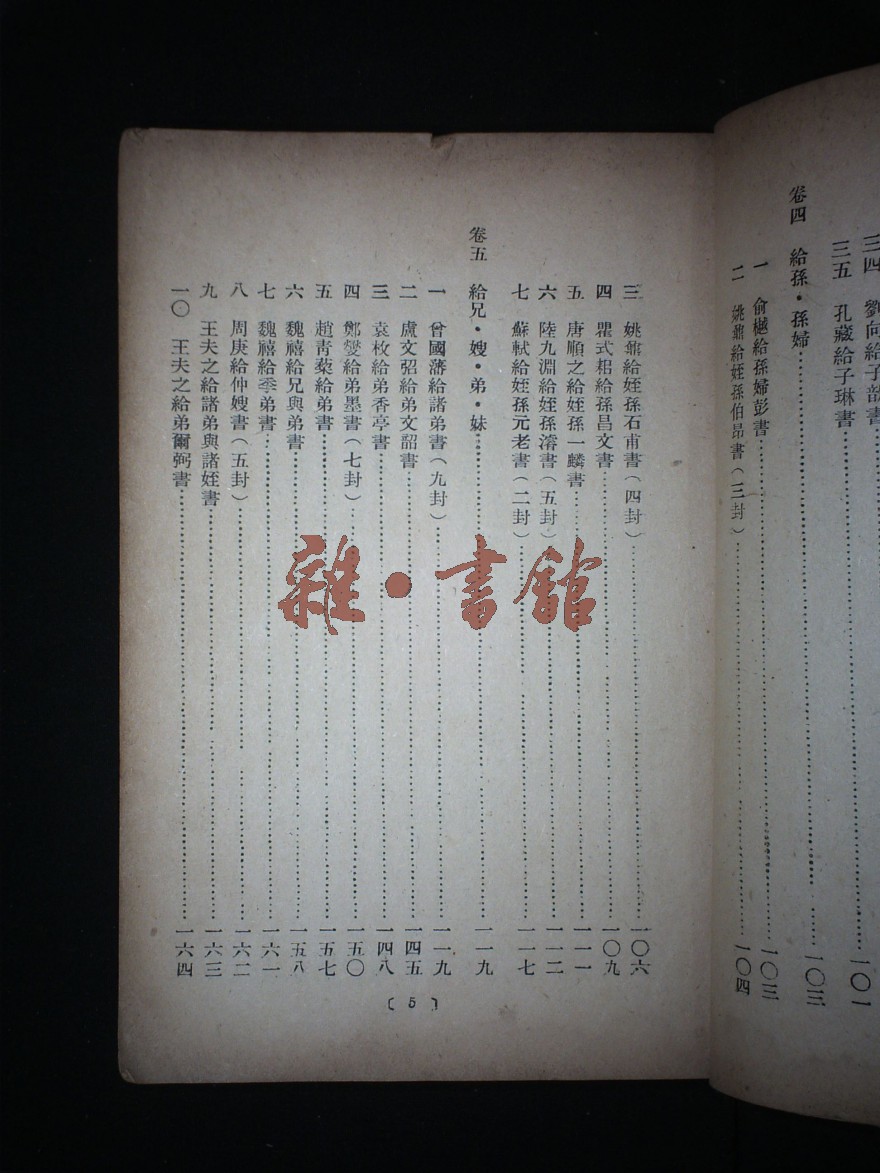 三四 劉向給子歆書
三五 孔臧給子琳書……一〇一
卷四 給孫·孫婦……一〇三
一 俞樾給孫婦彭書……一〇三
二 姚鼐給姪孫伯昂書（三封）……一〇四
三 姚鼐給姪孫石甫書（四封）……一〇六
四 瞿式耜給孫昌文書……一〇九
五 唐順之給姪孫一麟書……一一一
六 陸九淵給姪孫濬書（五封）……一一二
七 蘇軾給姪孫元老書（二封）……一一七
卷五 給兄·嫂·弟·妹……一一九
一 曾國藩給諸弟書（九封）……一一九
二 盧文弨給弟文韶書……一四五
三 袁枚給弟香亭書……一四八
四 鄭燮給弟墨書（七封）……一五〇
五 趙青藜給弟書……一五七
六 魏禧給兄與弟書……一五八
七 魏禧給季弟書……一六一
八 周庚給仲嫂書（五封）……一六二
九 王夫之給諸弟與諸姪書……一六三
一〇 王夫之給弟爾弼書……一六四
〔5〕
雜·書館